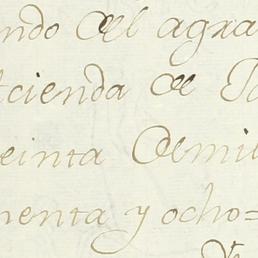 ndo del agra
cienda de
einta de mil
nenta y ocho=